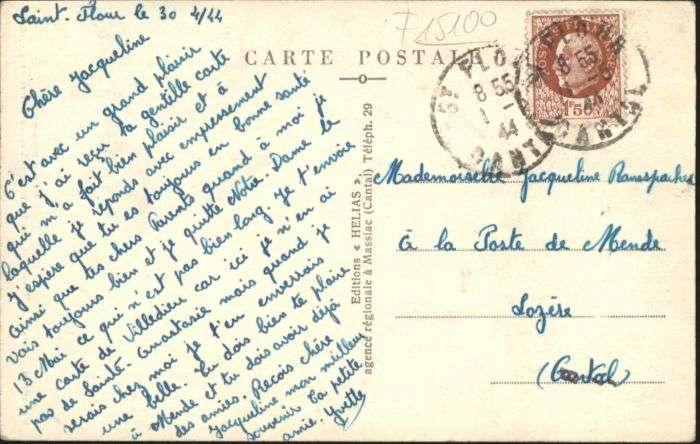 Saint. Flour le 30 4/44
715100
CARTE POSTALE
Chère Jacqueline
C'est avec un grand plaisir
que j'ai reçu ta gentille carte
qui m'a fait bien plaisir et à
laquelle je réponds avec empressement
J'espère que tu es toujours en bonne santé
ainsi que tes chers Parents quand à moi je
vais toujours bien et je quitte Notre. Dame le
13 Mai ce qui n'est pas bien long. Je t'envoie
une carte de Villedieu car ici je n'en ai
pas de Sainte. Anastasie mais quand je
serais chez moi je t'en enverrais
une belle. Tu dois bien te plaire
à Mende et tu dois avoir déjà
des amies. Reçois chère
Jacqueline mon meilleur
souvenir ta petite
amie. Yvette
Editions « HELIAS »,
agence régionale à Massiac (Cantal) Téléph. 29
ST FLOUR
8 55
1 - 5
44
CANTAL
1F50
Mademoiselle Jacqueline Ranespacher
à la Poste de Mende
Lozère
(Cantal)